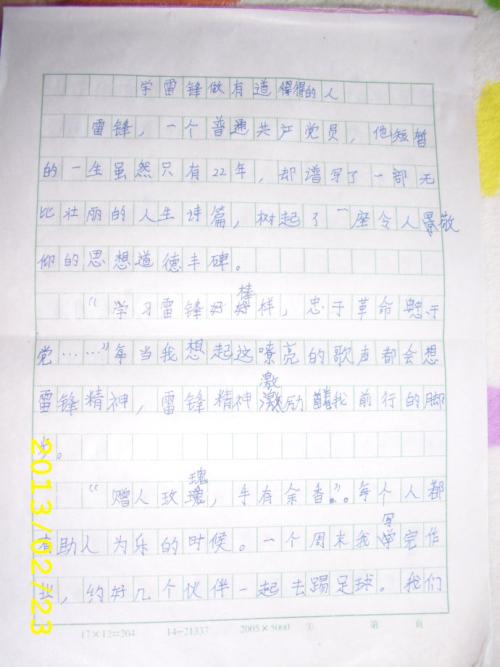 学雷锋做有道德的人
雷锋，一个普通共产党员，他短暂
的一生虽然只有22年，却谱写了一部无
比壮丽的人生诗篇，树起了一座令人景敬
仰的思想道德丰碑。
“学习雷锋好榜样，忠于革命忠于
党……”每当我想起这嘹亮的歌声都会想
雷锋精神，雷锋精神激励着我前行的脚
步。
“赠人玫瑰，手有余香”。每个人都
有助人为乐的时候。一个周末我写完作
业，约好几个伙伴一起去踢足球。我们
17×12=204 14-21337 2005×5000 ① 第 页
2013/02/23